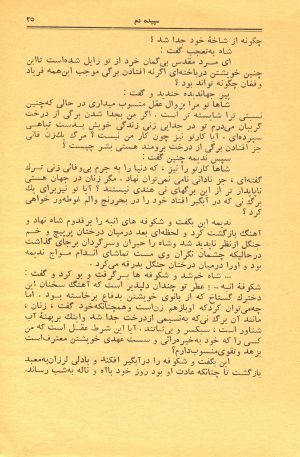 سپیده دم
۲۵
چگونه از شاخهٔ خود جدا شد ؟
شاه به‌تعجب گفت :
ای مرد مقدس بی‌گمان خرد از تو زایل شده‌است تااین
چنین خویشتن درباخته‌ای اگرنه افتادن برگی موجب این‌همه فریاد
و فغان چگونه تواند بود ؟
پیر جهاندیده خندید و گفت :
شاها تو مرا بزوال عقل منسوب میداری در حالی که‌چنین
نسبتی ترا شایسته‌تر است . اگر من بجدا شدن برگی از درخت
گریبان می‌درم تو در جدایی زنی زندگی خویش بدست تباهی
سپرده‌ای . آیا کارتو نیز چون کار من نیست ؟ مرگ یک‌زن فانی
جز افتادن برگی از درخت برومند هستی بشر چیست ؟
سپس ندیمه چنین گفت :
شاها کارتو را نیز ، که دنیا را به جرم بی‌وفائی زنی ترک
گفته‌ای ، جز نادانی نامی نمی‌توان نهاد . مگر زنان در جهان هستی
ناپایدار تر از این برگهای نی هندی نیستند ؟ آیا تو نیزبرای یک
برگ نی که در آبگیر افتاد خود را در بحررنج والم غوطه‌ور خواهی
کرد ؟
ندیمه این بگفت و شکوفه های انبه را برقدوم شاه نهاد و
آهنگ بازگشت کرد و لحظه‌ای بعد درمیان درختان پرپیچ و خم
جنگل از نظر ناپدید شد وشاه را حیران وسرگردان برجای گذاشت
درحالیکه چشمان نگران وی مست تماشای اندام مواج ندیمه
بود و اورا درمیان درختان جنگل بدرقه می‌کرد .
شاه خم‌شد و شکوفه ها برگرفت و بو کرد و گفت :
شکوفهٔ انبه ـ! عطر تو چندان دلپذیر است که آهنگ سخنان این
دخترک گستاخ که از بانوی خویشتن بدفاع برخاسته بود . اما
چه‌می‌توان کرد که اوبازهم زن‌است وهمچنانکه‌خود گفت ، زنان ،
مانند آن برگ نی‌که به‌نسیمی ازدرخت جدا شد واینک برپهنهٔ آب
شناور است ، سبکسر و بی‌ثباتند . آیا این شرط عقل است که من
کسی را که خود به‌خیره‌رائی و سست عهدی خویشتن معترف‌است
بزهد وتقوی‌منسوب‌دارم؟
این بگفت و شکوفه را درآبگیر افکند و بادلی لرزان‌به‌معبد
بازگشت تا چنانکه عادت او بود روز خود باآه و ناله به‌شب رساند.